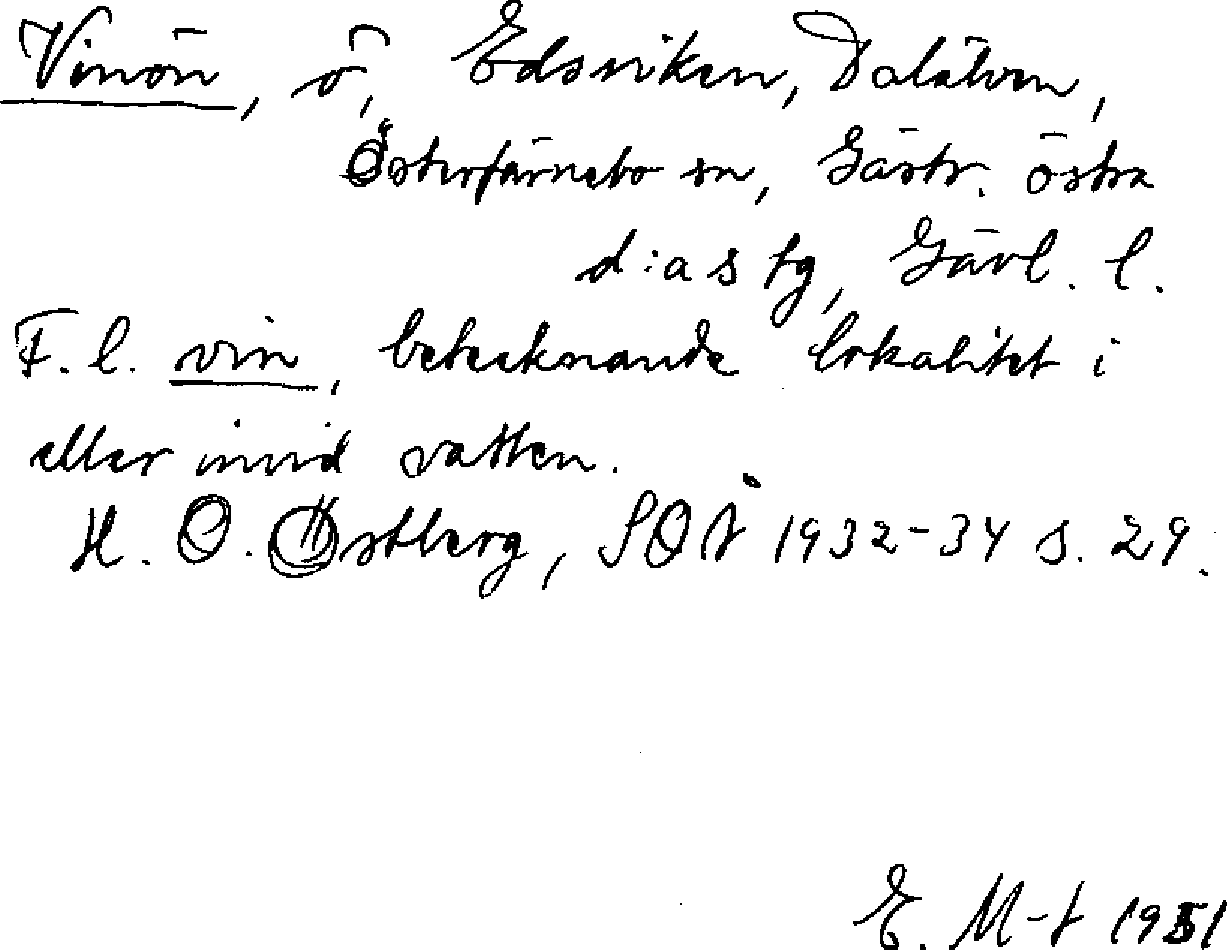 Vinön, ö, Edsviken, Dalälven,
Österfärnebo sn, Gästr. östra
d:a s tg, Gävl. l.
F. l. vin, betecknande lokalitet i
eller invid vatten.
H. O. Östberg, SOÅ 1932-34 s. 29.
E. M-t 1951